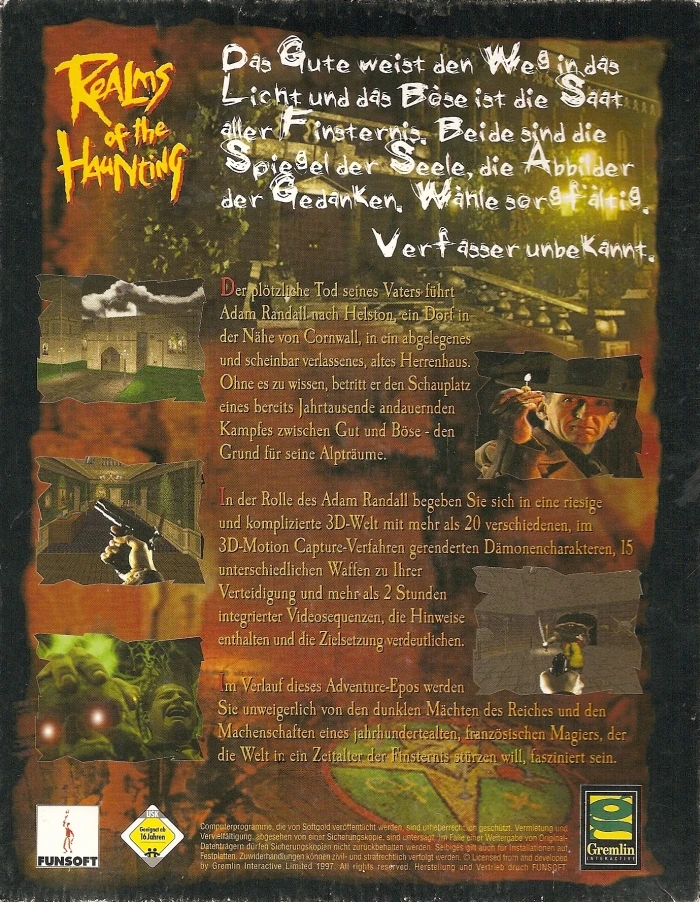 Realms
of the
Haunting
Das Gute weist den Weg in das
Licht und das Böse ist die Saat
aller Finsternis. Beide sind die
Spiegel der Seele, die Abbilder
der Gedanken. Wähle sorgfältig.
Verfasser unbekannt.
Der plötzliche Tod seines Vaters führt
Adam Randall nach Helston, ein Dorf in
der Nähe von Cornwall, in ein abgelegenes
und scheinbar verlassenes, altes Herrenhaus.
Ohne es zu wissen, betritt er den Schauplatz
eines bereits Jahrtausende andauernden
Kampfes zwischen Gut und Böse - den
Grund für seine Alpträume.
In der Rolle des Adam Randall begeben Sie sich in eine riesige
und komplizierte 3D-Welt mit mehr als 20 verschiedenen, im
3D-Motion Capture-Verfahren gerenderten Dämonencharakteren, 15
unterschiedlichen Waffen zu Ihrer
Verteidigung und mehr als 2 Stunden
integrierter Videosequenzen, die Hinweise
enthalten und die Zielsetzung verdeutlichen.
Im Verlauf dieses Adventure-Epos werden
Sie unweigerlich von den dunklen Mächten des Reiches und den
Machenschaften eines jahrhundertealten, französischen Magiers, der
die Welt in ein Zeitalter der Finsternis stürzen will, fasziniert sein.
FUNSOFT
USK
Geeignet ab
16 Jahren
Computerprogramme, die von Softgold veröffentlicht werden, sind urheberrechtlich geschützt. Vermietung und
Vervielfältigung, abgesehen von einer Sicherungskopie, sind untersagt. Im Falle einer Weitergabe von Original-
Datenträgern dürfen Sicherungskopien nicht zurückbehalten werden. Selbiges gilt auch für Installationen auf
Festplatten. Zuwiderhandlungen können zivil- und strafrechtlich verfolgt werden. © Licensed from and developed
by Gremlin Interactive Limited 1997. All rights reserved. Herstellung und Vertrieb druch FUNSOFT
Gremlin
INTERACTIVE